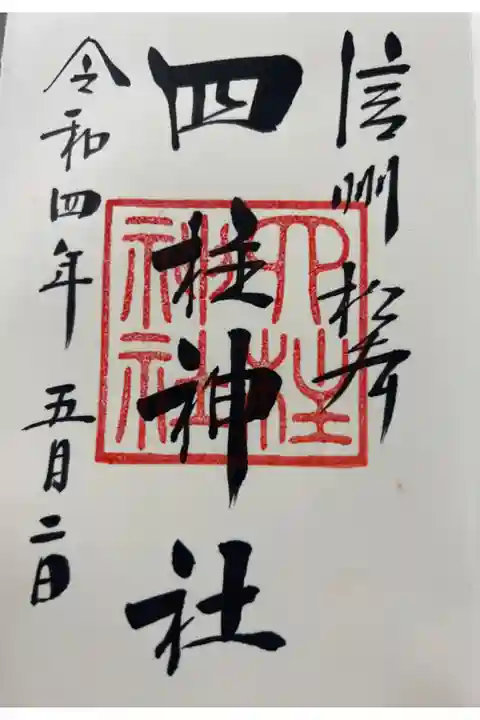 信州松本
四柱神社
令和四年 五月二日
四柱
神社